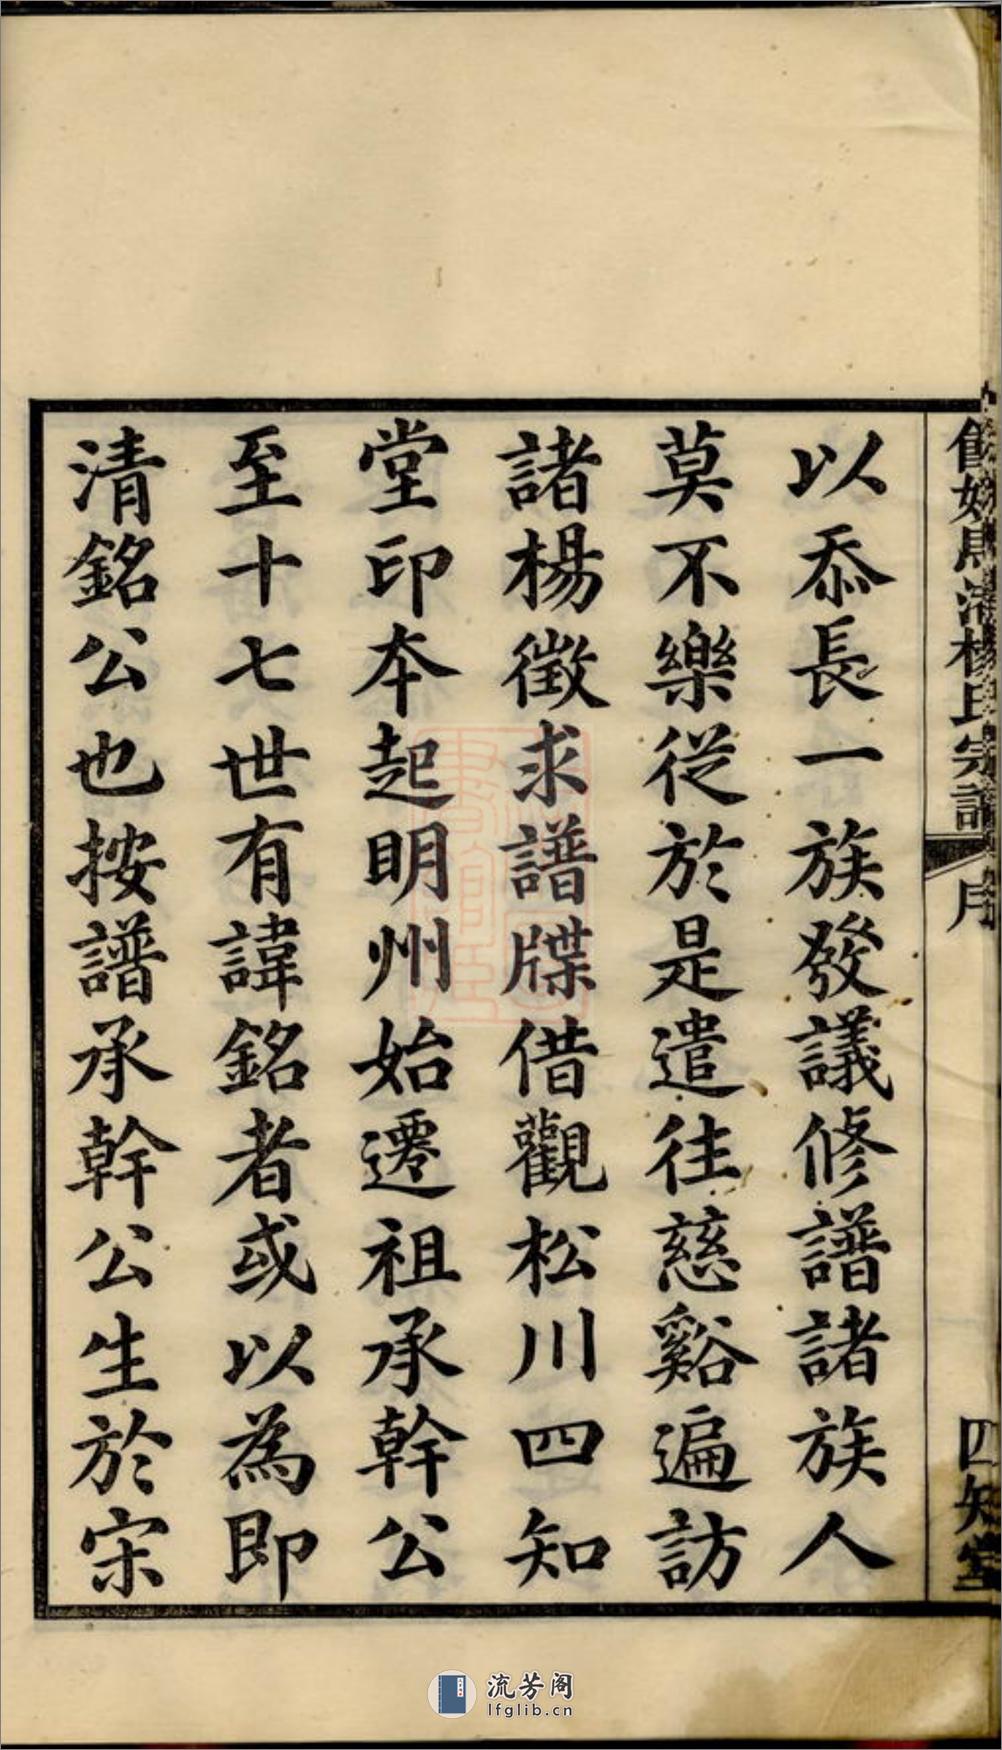 以忝長一族發議修譜諸族人
莫不樂從於是遣往慈谿遍訪
諸楊徵求譜牒借觀松川四知
堂印本起明州始遷祖承幹公
至十七世有諱銘者或以為即
清銘公也按譜承幹公生於宋
楊氏宗譜
序
四知堂
流芳阁
lfglib.cn